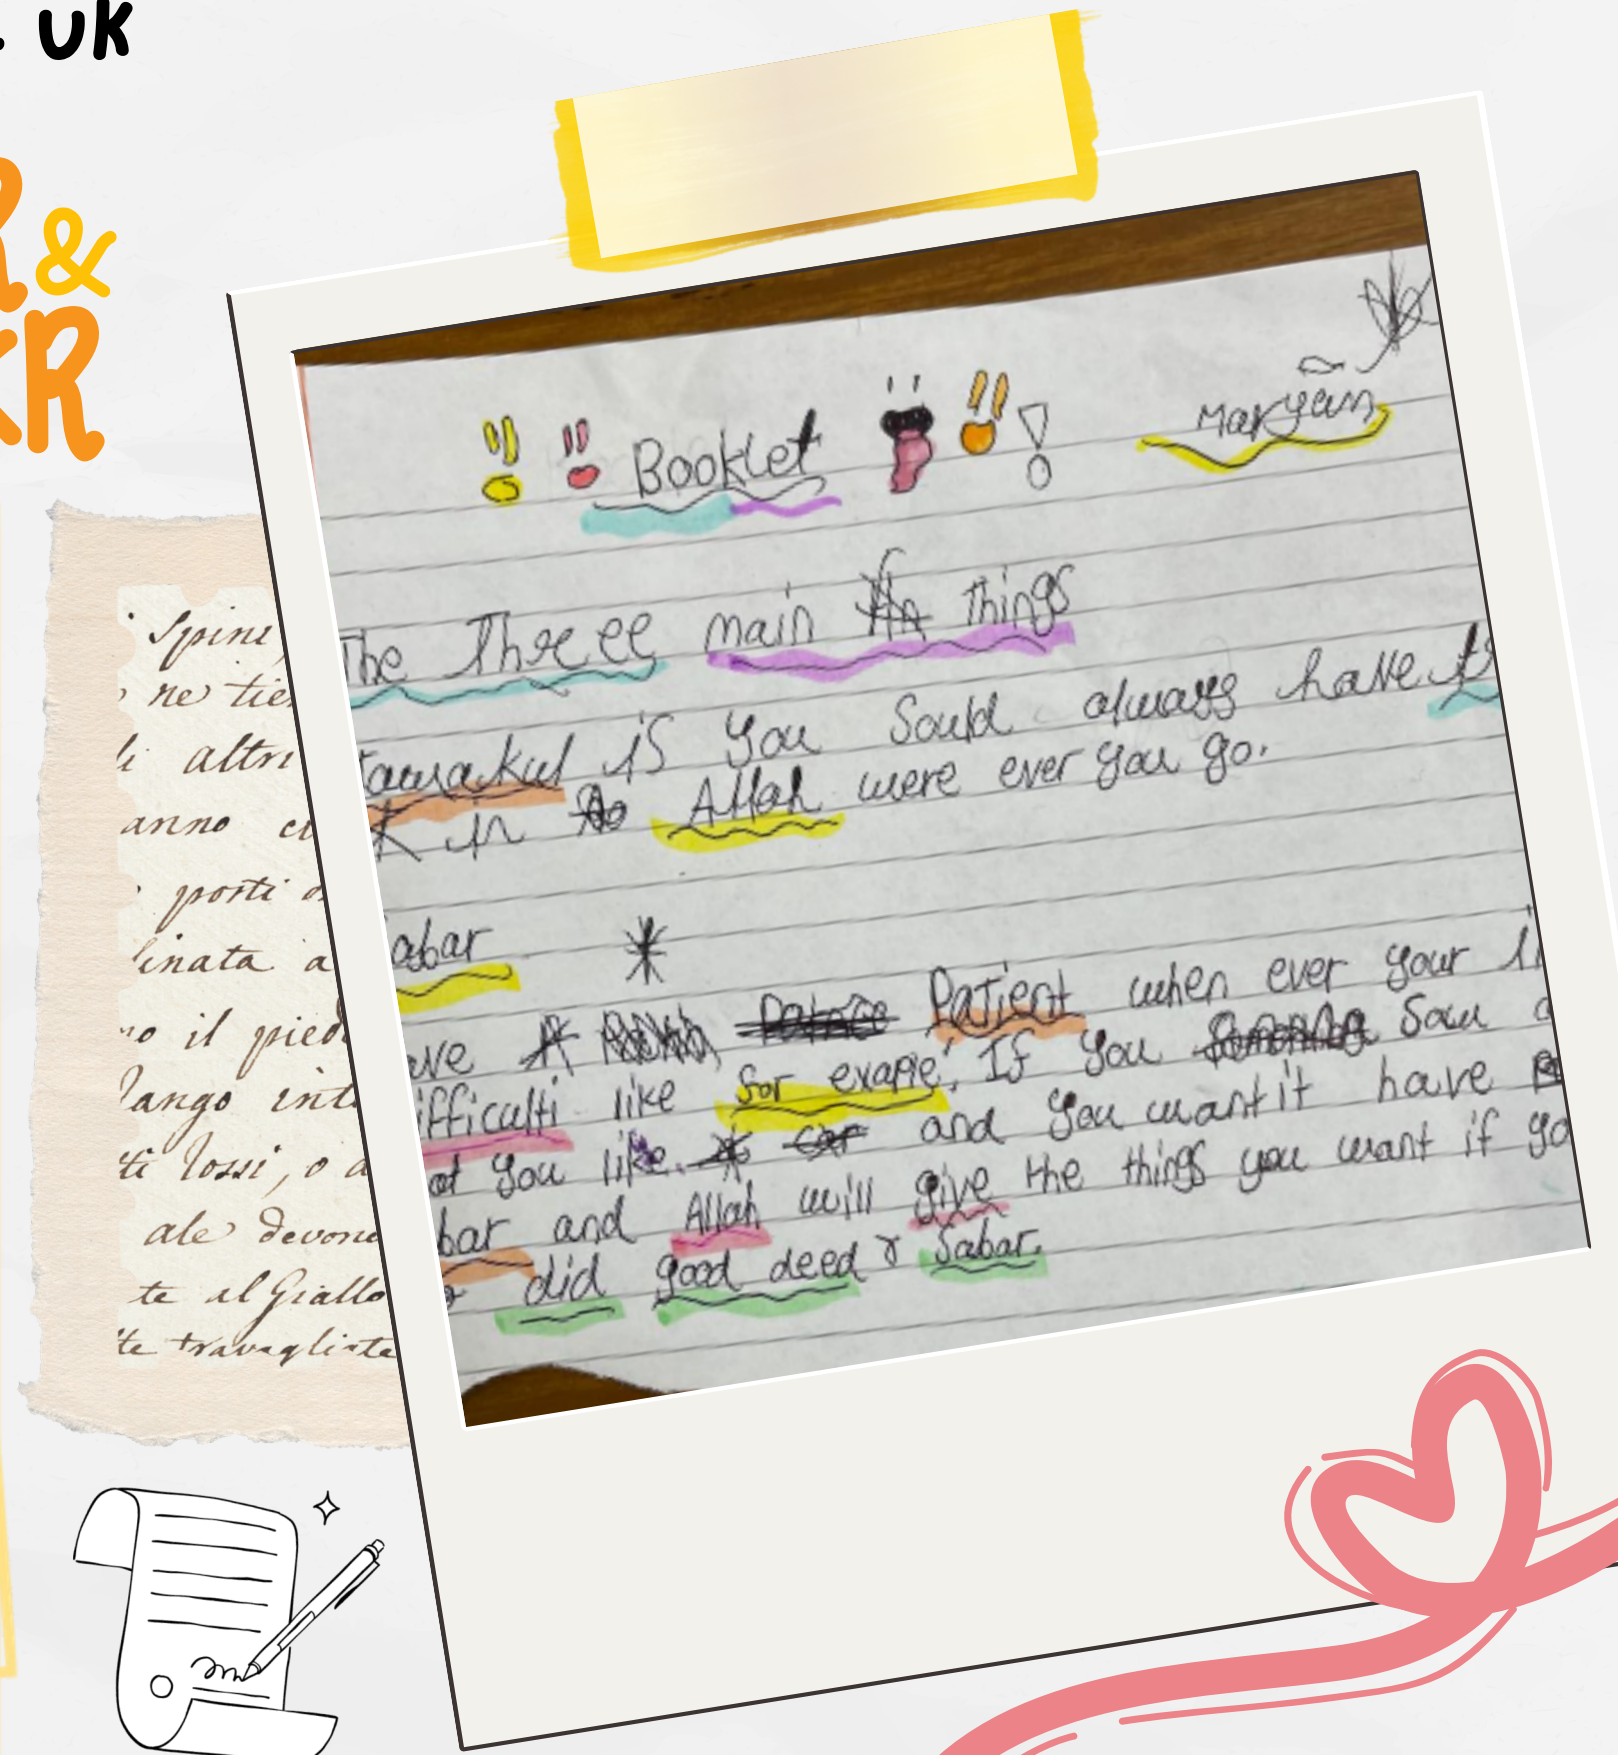 UK
R &
KR
Booklet
Maryam
The Threee main things
tawakul is you Sould always have
in Allah were ever you go.
abar
Patient when ever your li
ifficulti like for exaple, If you Saw a
ot you like. and you want it have
bar and Allah will give the things you want if yo
did good deed & Sabar.
Spine,
ne tie
li altri
anno ci
porti
linata a
no il pied
lango int
ti lossi, o a
ale devono
te al Giallo
te travagliate